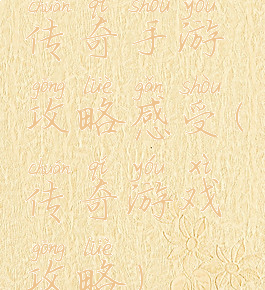 chuán qí shǒu yóu
传奇手游
gōng lüè gǎn shòu
攻略感受(
chuán qí yóu xì
传奇游戏
gōng lüè
攻略)